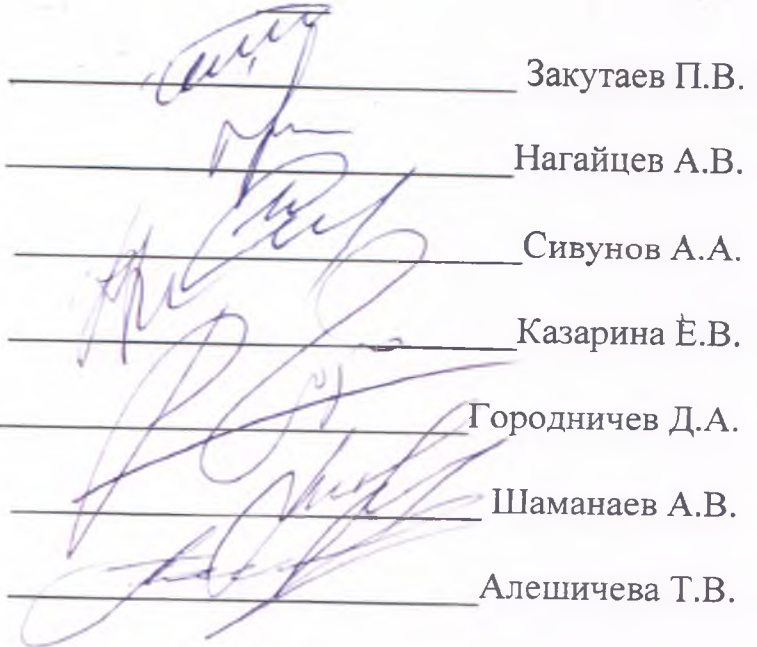 Закутаев П.В.
Нагайцев А.В.
Сивунов А.А.
Казарина Е.В.
Городничев Д.А.
Шаманаев А.В.
Алешичева Т.В.